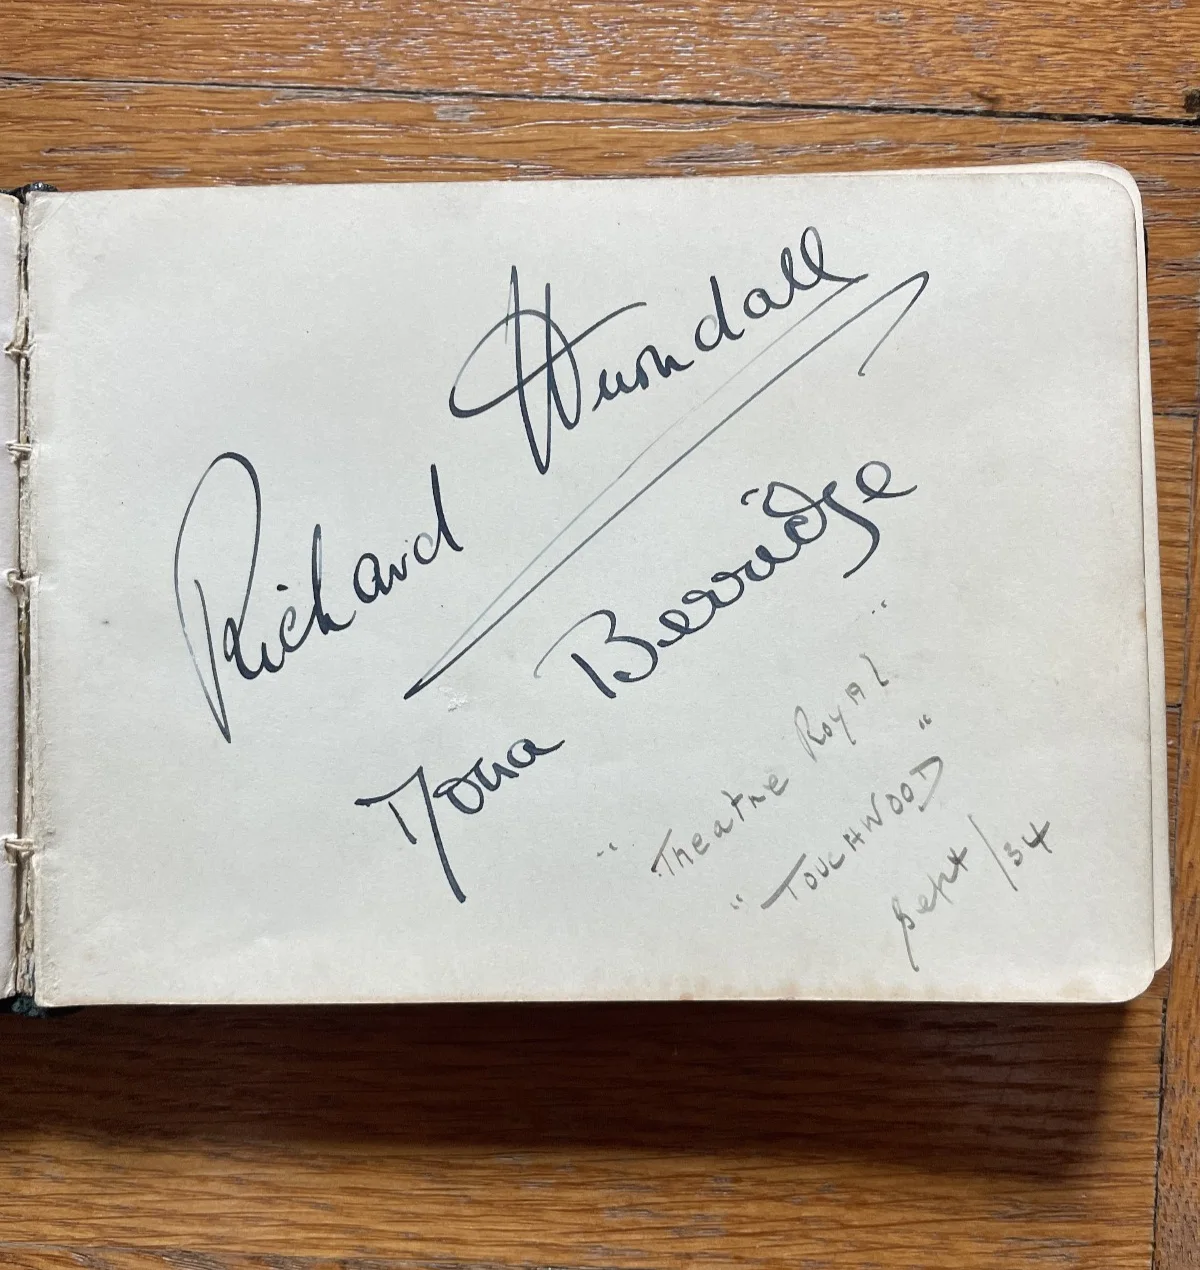 Richard Hurndall
Mona Berridge
"Theatre Royal"
"TOUCHWOOD"
Sept/34